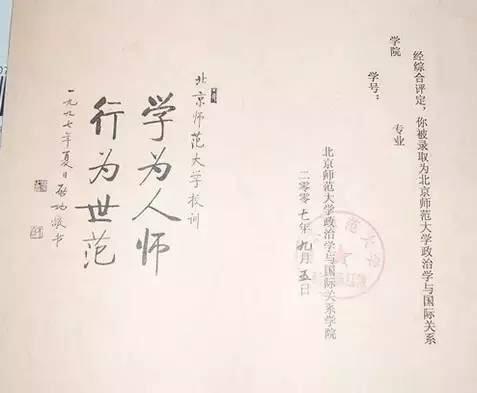 经综合评定，你被录取为北京师范大学政治学与国际关系
学院 专业
学号：
北京师范大学政治学与国际关系学院
二〇〇七年九月五日
北京师范大学校训
学为人师
行为世范
一九九七年夏日 启功敬书